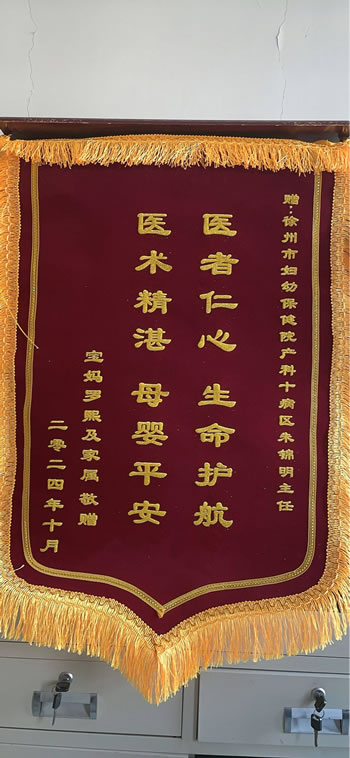 赠:徐州市妇幼保健院产科十病区朱锦明主任
医者仁心 生命护航
医术精湛 母婴平安
宝妈罗熙及家属敬赠
二零二四年十月